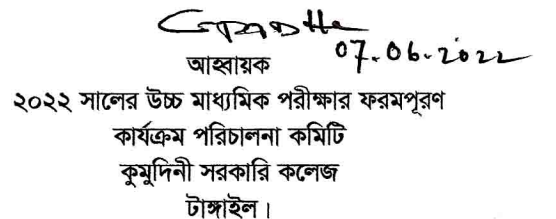 07.06.2022
আহ্বায়ক
২০২২ সালের উচ্চ মাধ্যমিক পরীক্ষার ফরমপূরণ
কার্যক্রম পরিচালনা কমিটি
কুমুদিনী সরকারি কলেজ
টাঙ্গাইল।